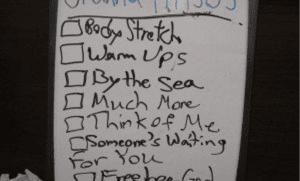 Body Stretch
Warm Ups
By the Sea
Much More
Think of Me
Someone's Waiting
For You